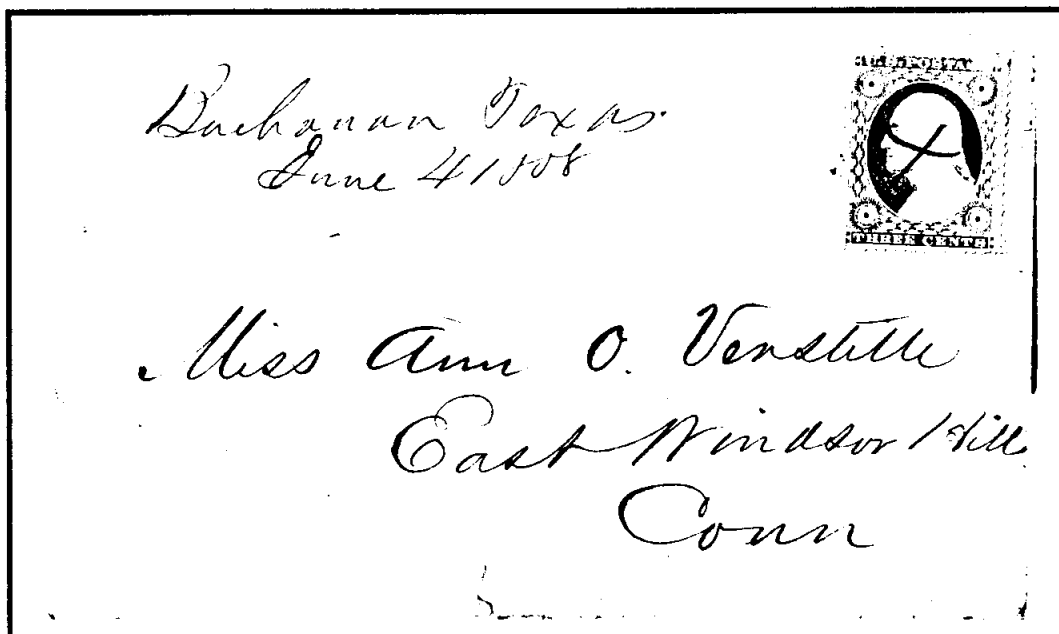 Buchanan Texas.
June 4 1858
THREE CENTS
Miss Ann O. Verstille
East Windsor Hill
Conn